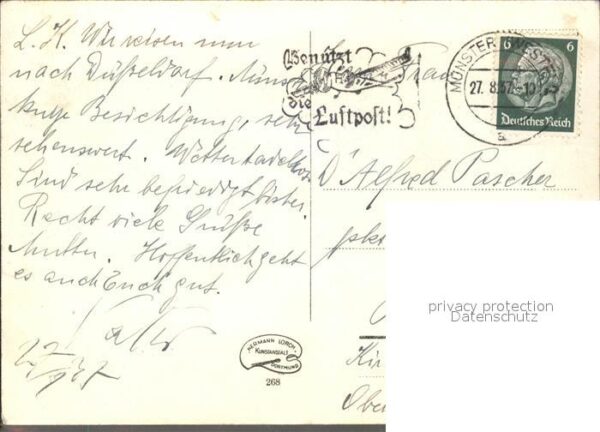 L. K. Wir reisen nun
nach Düßeldorf.
kurze Besichtigung, sehr
sehenswert. Wetter tadellos
Sind sehr befriedigt bisher
Recht viele Grüße
Mutter. Hoffentlich geht
es auch Euch gut.
Benützt
die
Luftpost!
MÜNSTER (WESTF)
27.8.37.-10
a
6 6
Deutsches Reich
Frau
Dr Alfred Pascher
HERMANN LORCH
KUNSTANSTALT
DORTMUND
268
privacy protection
Datenschutz